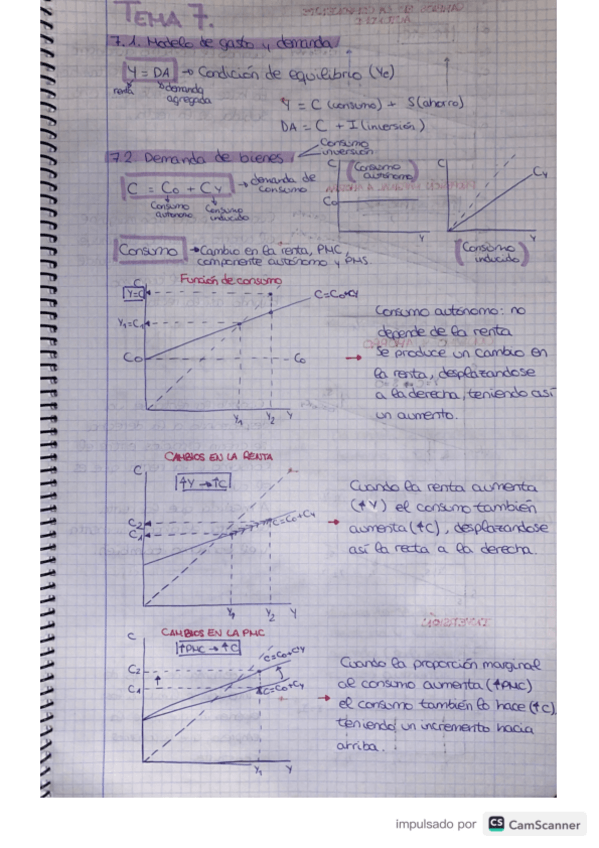 TEMA 7.
7.1. Modelo de gasto y demanda
Y = DA → Condición de equilibrio (Ye)
renta demanda agregada
Y = C (consumo) + S(ahorro)
DA = C + I (inversión)
7.2. Demanda de bienes
Consumo
inversión
C = Co + Cy → demanda de consumo
Consumo autonomo
Consumo inducido
C
Co
(Consumo autonomo)
Y
C
Cy
Y
(Consumo inducido)
Consumo → Cambio en la renta, PMC,
componente autónomo y PMS
Función de consumo
C
Y=C
C=Co+Cy
Y1=C1
Co
Co
Y1 Y2 Y
Consumo autónomo: no
depende de la renta
→ Se produce un cambio en
la renta, desplazandose
a la derecha, teniendo así
un aumento.
CAMBIOS EN LA RENTA
C
↑Y → ↑C
C2
C1
C=Co+Cy
Y1 Y2 Y
Cuando la renta aumenta
(↑Y) el consumo también
→ aumenta (↑C), desplazandose
así la recta a la derecha.
CAMBIOS EN LA PMC
C
↑PMC → ↑C
C=Co+C'Y
C2
C1
C=Co+Cy
Y1 Y
Cuando la proporción marginal
al consumo aumenta (↑PMC)
→ el consumo también lo hace (↑C)
teniendo un incremento hacia
arriba.
impulsado por CS CamScanner